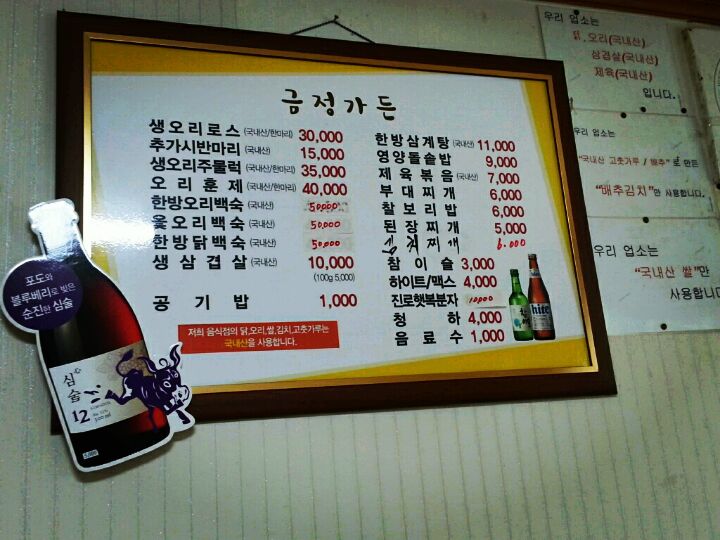 금정가든
생오리로스 (국내산/한마리) 30,000
추가시반마리 (국내산) 15,000
생오리주물럭 (국내산/한마리) 35,000
오리훈제 (국내산/한마리) 40,000
한방오리백숙 (국내산) 50,000
옻오리백숙 (국내산) 50,000
한방닭백숙 (국내산) 50,000
생삼겹살 (국내산) 10,000
(100g 5,000)
공기밥 1,000
저희 음식점의 닭,오리,쌀,김치,고춧가루는
국내산을 사용합니다.
한방삼계탕 (국내산) 11,000
영양돌솥밥 9,000
제육볶음 (국내산) 7,000
부대찌개 6,000
찰보리밥 6,000
된장찌개 5,000
찌개 6.000
참이슬 3,000
하이트/맥스 4,000
진로햇복분자 10000
청하 4,000
음료수 1,000
hite
포도와
블루베리로 빚은
순진한 심술
심술
12
우리 업소는
닭.오리(국내산)
삼겹살(국내산)
제육(국내산)
입니다.
우리 업소는
"국내산 고춧가루 / 배추"로 만든
"배추김치"만 사용합니다.
우리 업소는
"국내산 쌀"만
사용합니다.